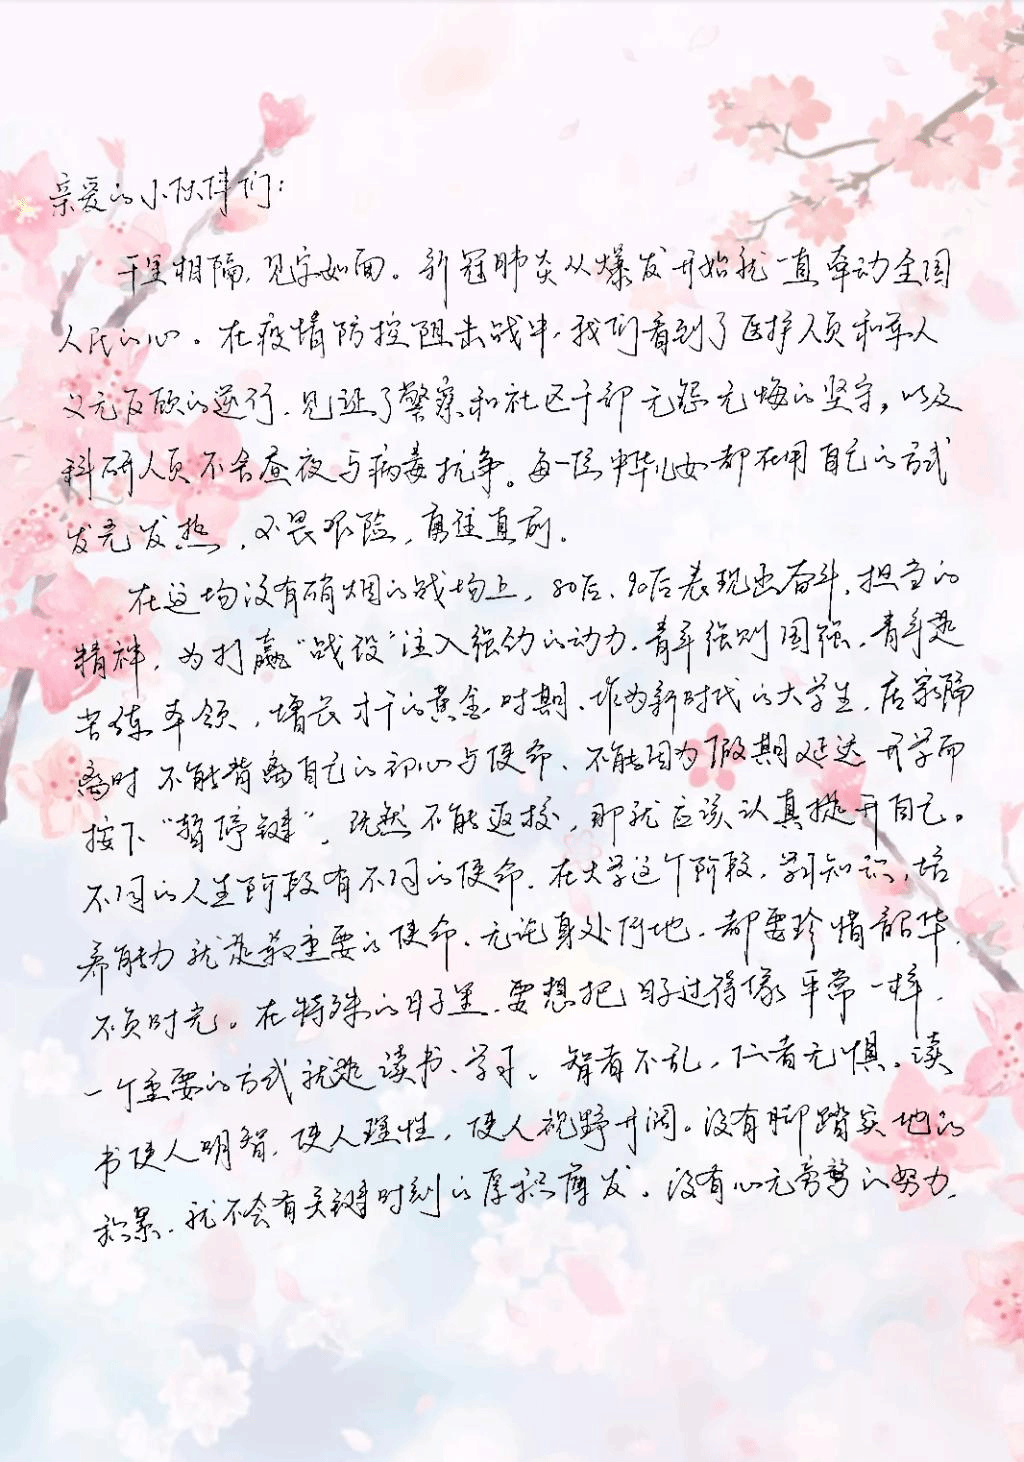 亲爱的小伙伴们：
千里相隔，见字如面。新冠肺炎从爆发开始就一直牵动全国
人民的心。在疫情防控阻击战中，我们看到了医护人员和军人
义无反顾的逆行，见证了警察和社区干部无怨无悔的坚守，以及
科研人员不舍昼夜与病毒抗争。每一位中华儿女都在用自己的方式
发光发热，不畏艰险，勇往直前。
在这场没有硝烟的战场上，80后、90后表现出奋斗、担当的
精神，为打赢“战役”注入强劲的动力。青年强则国强，青年是
苦练本领，增长才干的黄金时期，作为新时代的大学生，居家隔
离时不能背离自己的初心与使命，不能因为假期延迟开学而
按下“暂停键”，既然不能返校，那就应该认真提升自己。
不同的人生阶段有不同的使命，在大学这个阶段，学习知识，培
养能力就是最重要的使命，无论身处何地，都要珍惜韶华，
不负时光。在特殊的日子里，要想把日子过得像平常一样，
一个重要的方式就是读书、学习。智者不乱，仁者无惧。读
书使人明智，使人理性，使人视野开阔。没有脚踏实地的
积累，就不会有关键时刻的厚积薄发。没有心无旁骛的努力，